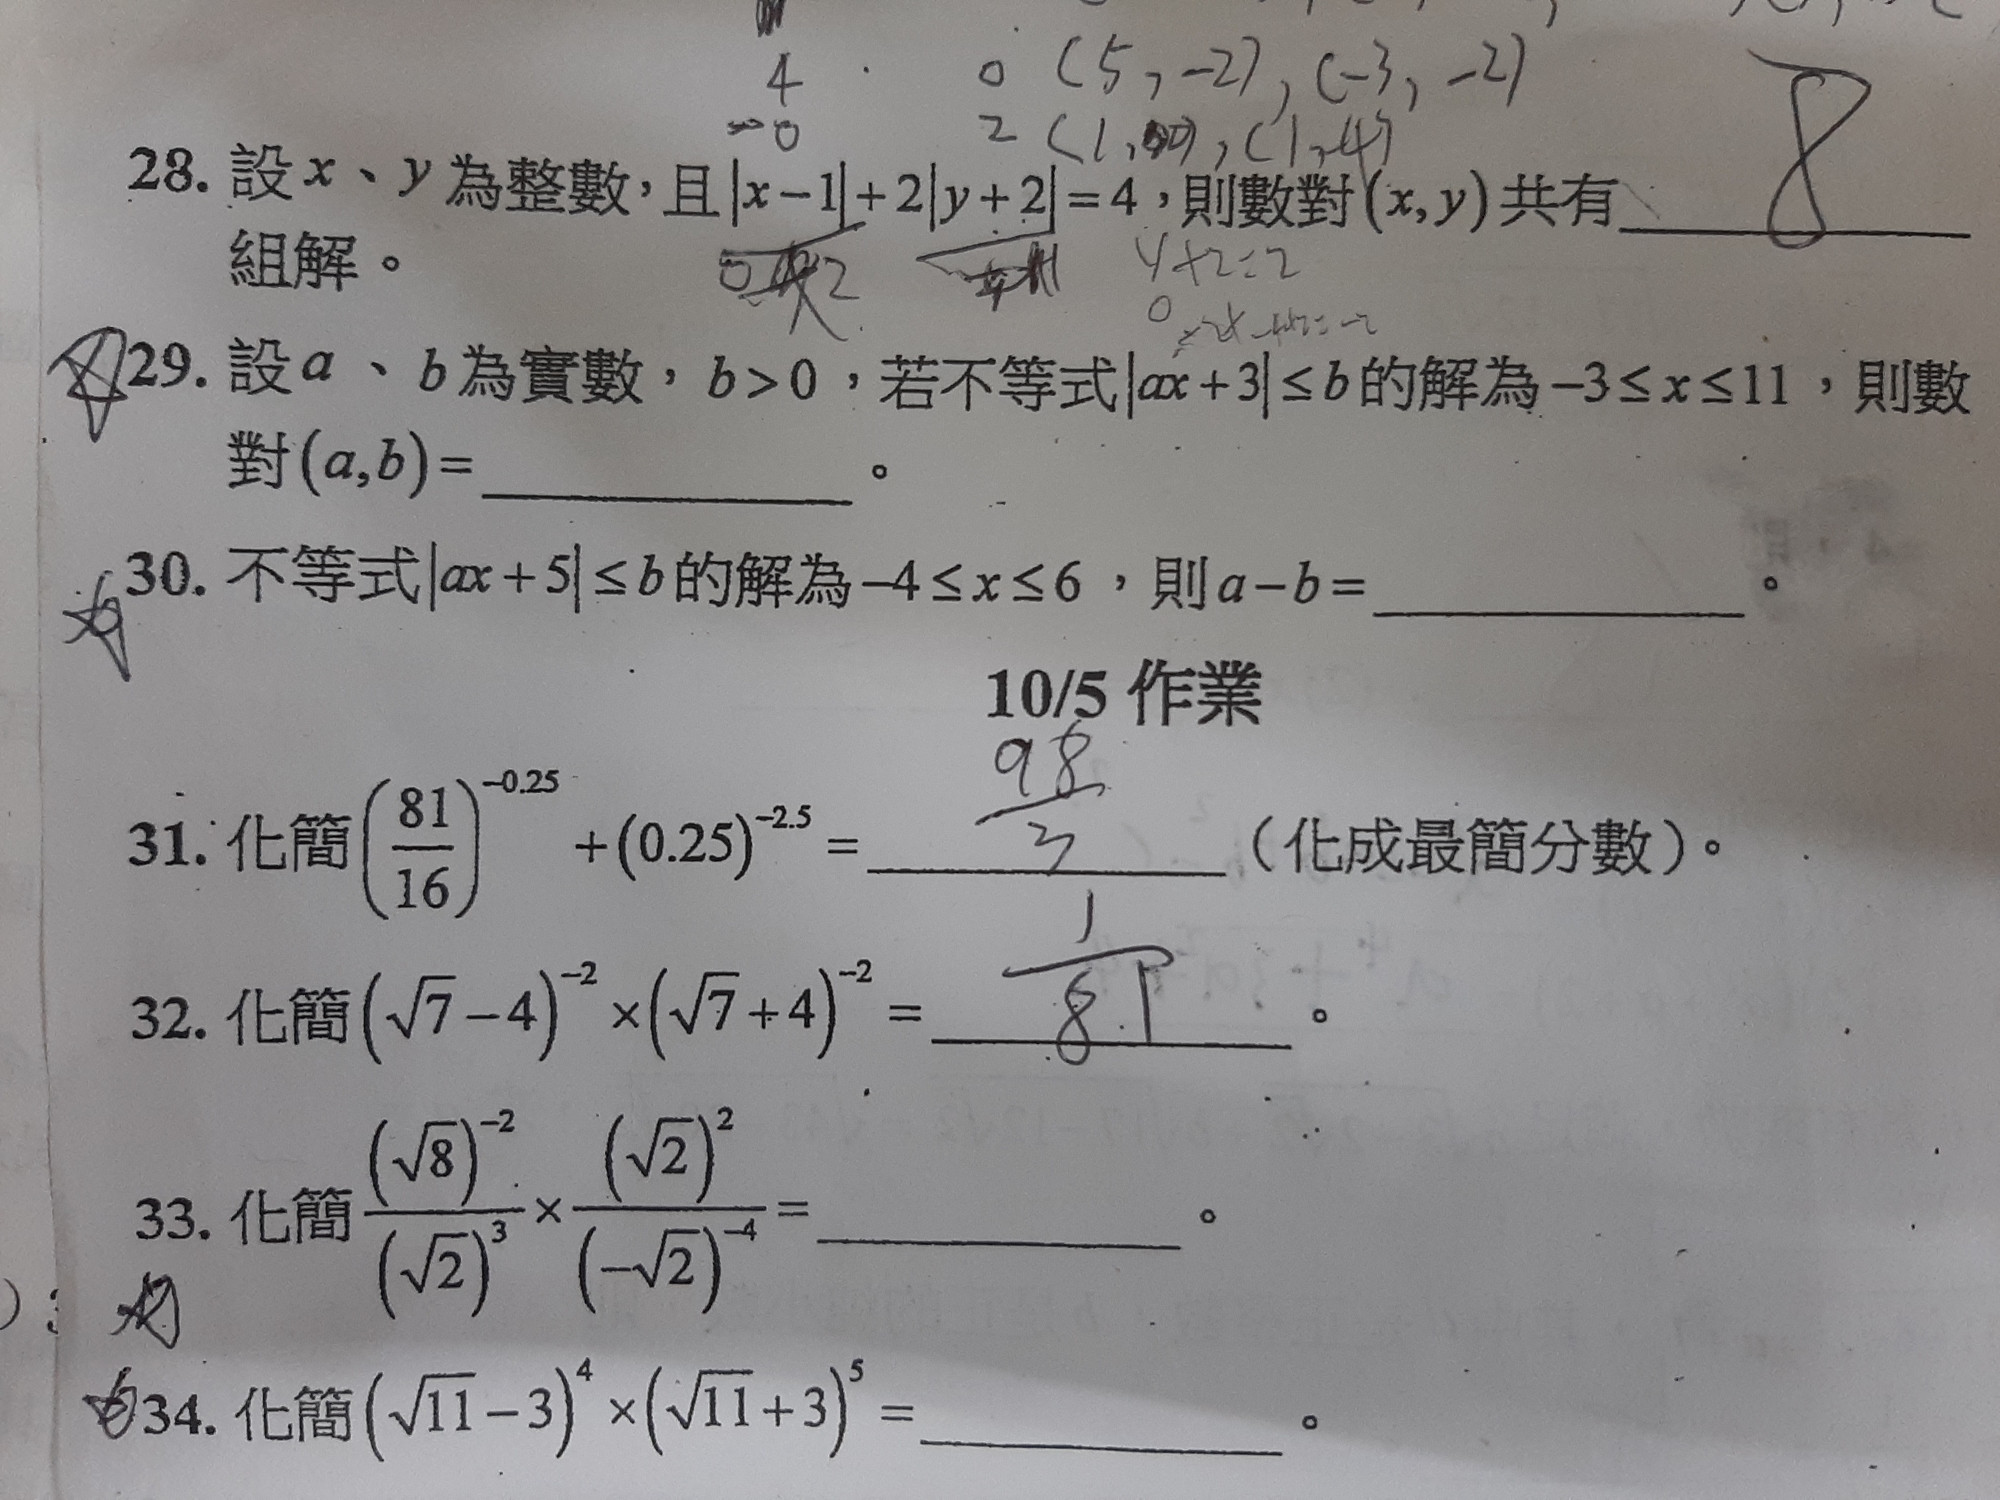 4 0 (5, -2), (-3, -2)
0 2 (1, 0), (1, -4)
28. 設 x、y 為整數，且 |x-1|+2|y+2|=4，則數對 (x, y) 共有 8
組解。
y+2=2
29. 設 a、b 為實數，b>0，若不等式 |ax+3|≤b 的解為 -3≤x≤11，則數
對 (a,b)=＿＿＿。
30. 不等式 |ax+5|≤b 的解為 -4≤x≤6，則 a-b=＿＿＿。
10/5 作業
31. 化簡 (81/16)^{-0.25}+(0.25)^{-2.5}= 98/3 （化成最簡分數）。
32. 化簡 (√7-4)^{-2}×(√7+4)^{-2}= 1/81 。
33. 化簡 (√8)^{-2}/(√2)^3 × (√2)^2/(-√2)^{-4} =＿＿＿。
34. 化簡 (√11-3)^4×(√11+3)^5=＿＿＿。